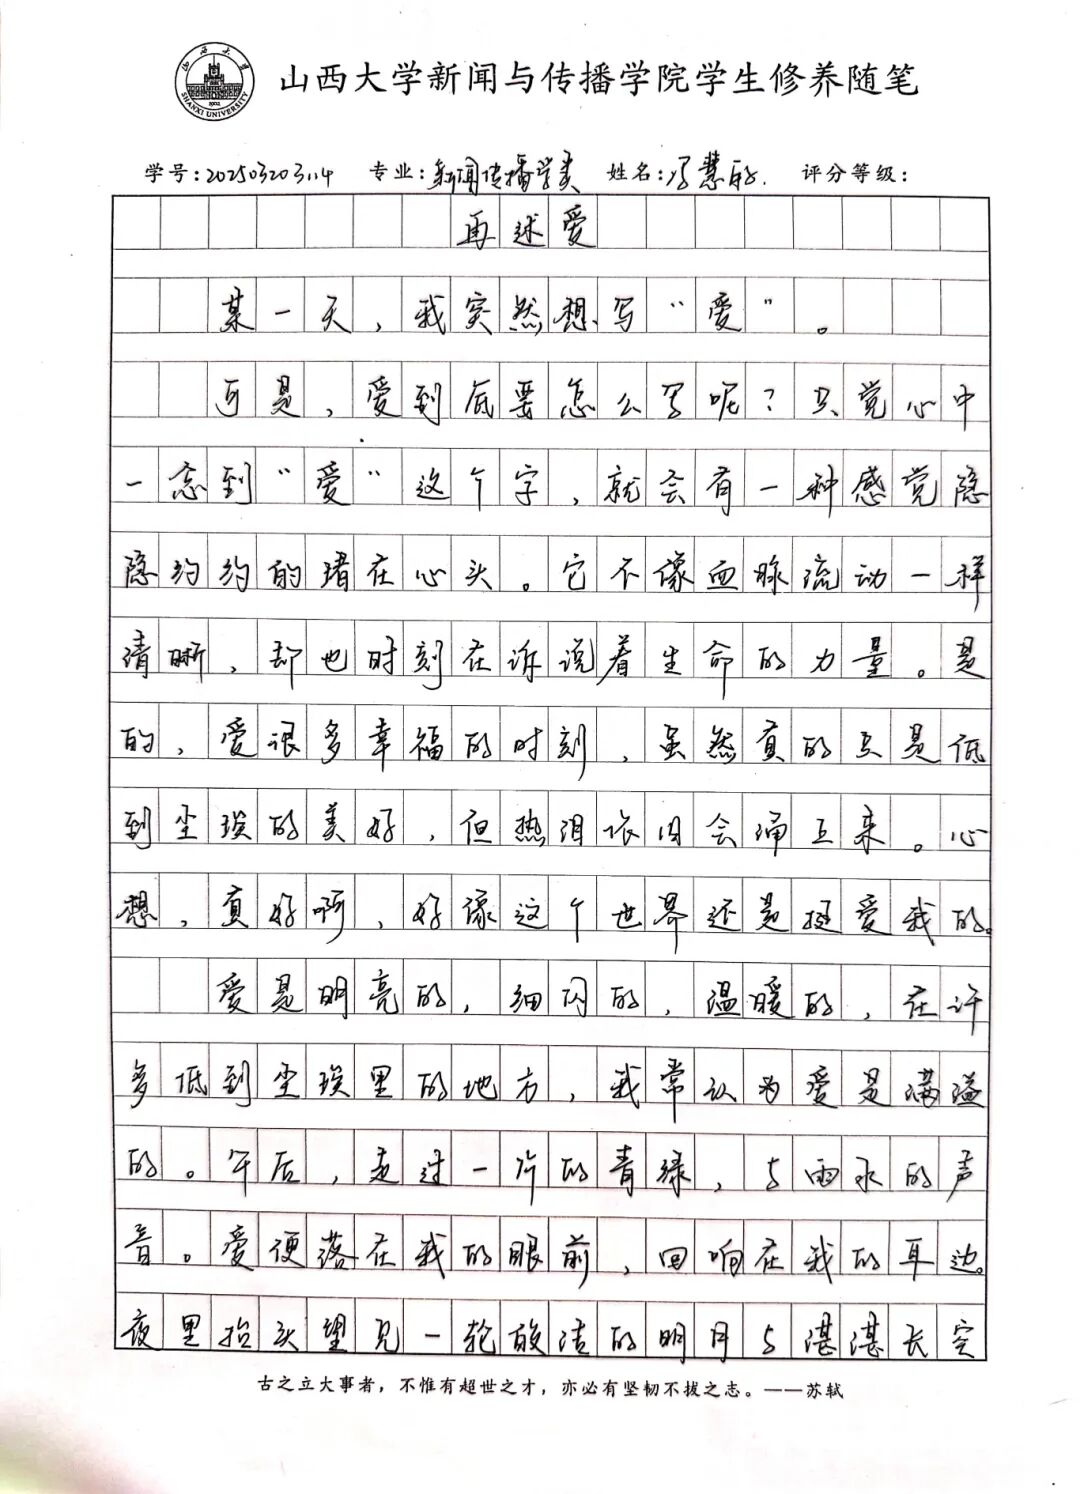 山西大学
SHANXI UNIVERSITY
1902
山西大学新闻与传播学院学生修养随笔
学号:202503203114 专业:新闻传播学类 姓名:冯慧 评分等级:
再述爱
某一天，我突然想写“爱”。
可是，爱到底要怎么写呢？只觉心中
一念到“爱”这个字，就会有一种感觉隐
隐约约的堵在心头。它不像血脉流动一样
清晰，却也时刻在诉说着生命的力量。是
的，爱很多幸福的时刻，虽然真的只是低
到尘埃的美好，但热泪依旧会涌上来。心
想，真好啊，好像这个世界还是挺爱我的。
爱是明亮的，细闪的，温暖的，在许
多低到尘埃里的地方，我常认为爱是满溢
的。午后，走过一片的青绿，与雨水的声
音。爱便落在我的眼前，回响在我的耳边。
夜里抬头望见一轮皎洁的明月与湛湛长空
古之立大事者，不惟有超世之才，亦必有坚韧不拔之志。——苏轼